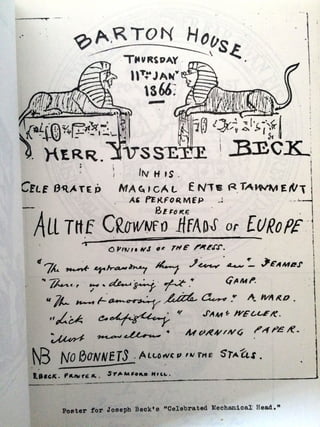 BARTON HOUSE.
THURSDAY
11TH JANY
1866.
HERR. YUSSEFF BECK
IN HIS
CELEBRATED MAGICAL ENTERTAINMENT
AS PERFORMED
BEFORE
ALL THE CROWNED HEADS OF EUROPE
OPINIONS OF THE PRESS.
"The most extraordney thing I ever see" JEAMES
"There's no denyging of it." GAMP.
"The most amoosing little Cuss." A. WARD.
"Lick cockfighting" SAML WELLER.
"Most marvellous" MORNING PAPER.
NB NO BONNETS. ALLOWED IN THE STALLS.
R. BECK. PRINTER. STAMFORD HILL.
Poster for Joseph Beck's "Celebrated Mechanical Head."